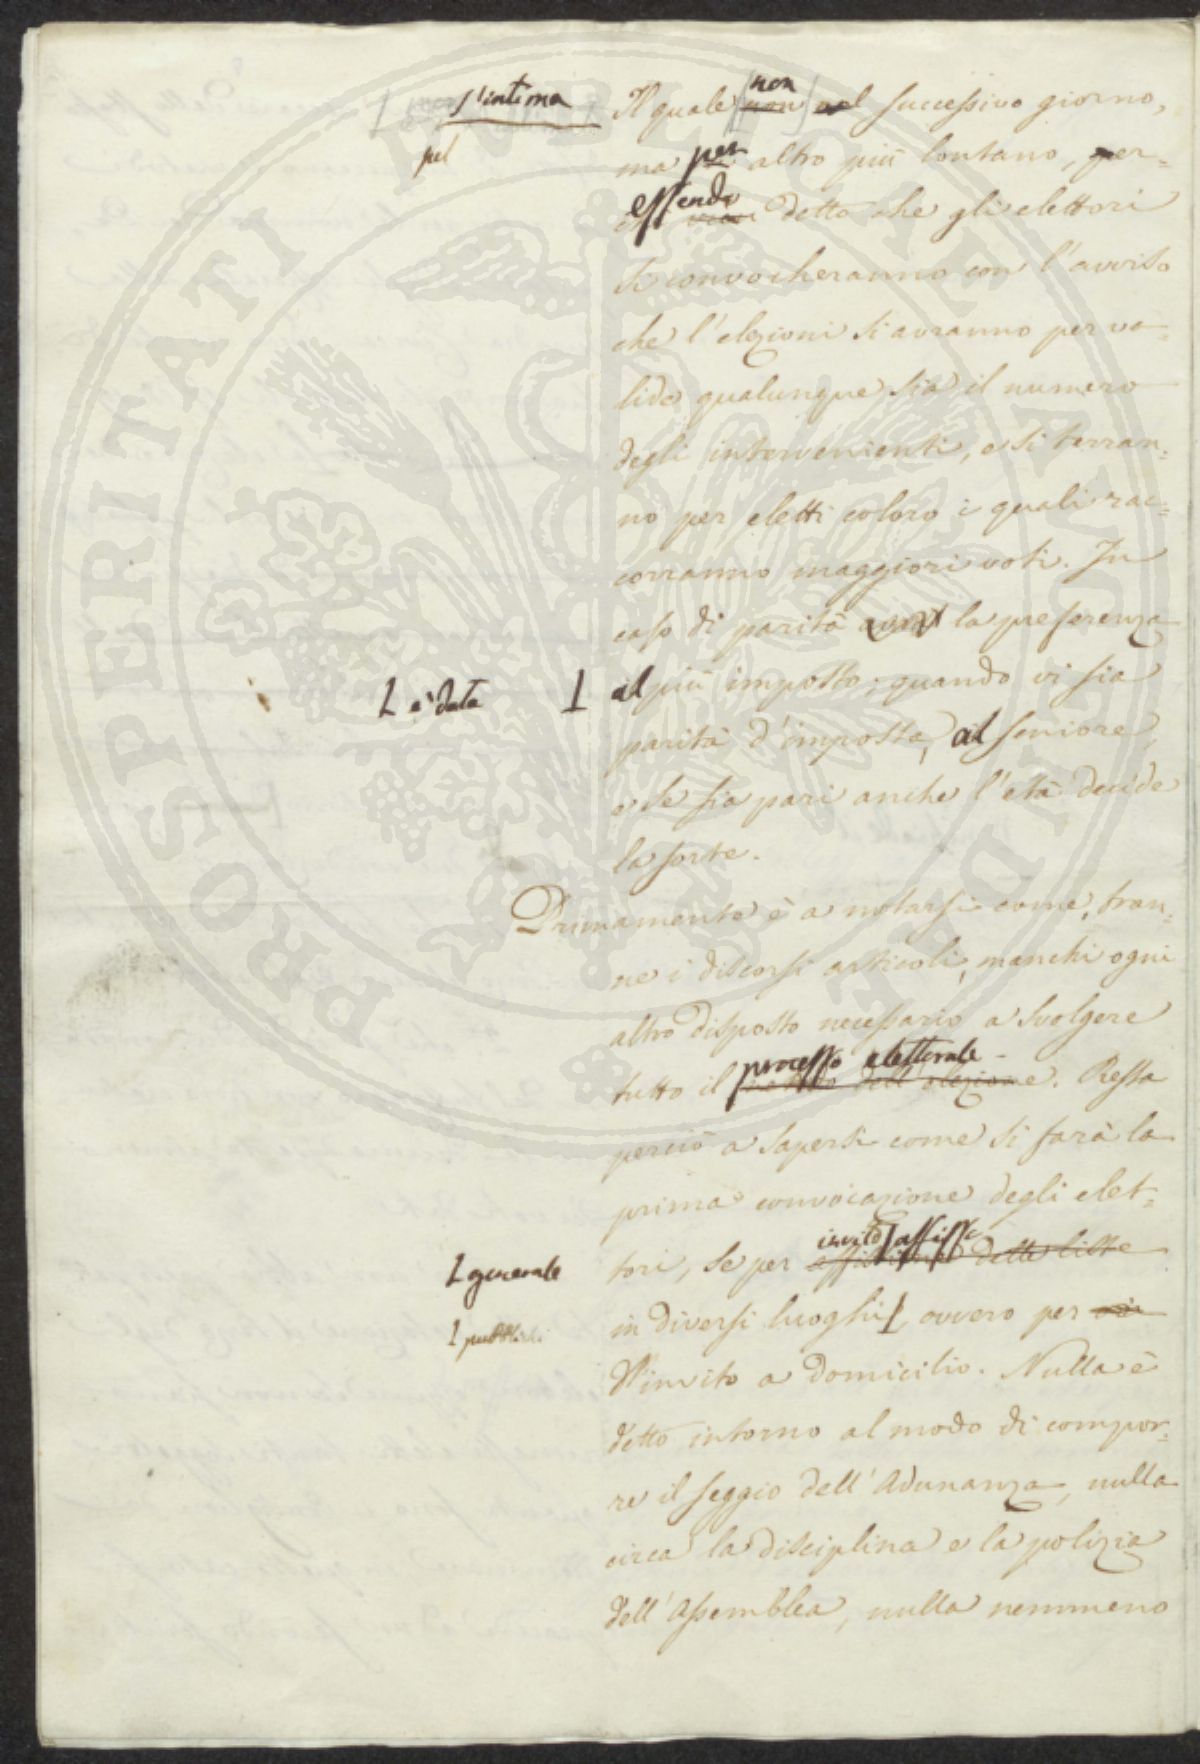 s'intima
pel
Il quale (non non) nel successivo giorno,
ma per altro più lontano, per=
essendo detto che gli elettori
si convocheranno con l'avviso
che l'elezioni si avranno per va=
lide qualunque sia il numero
degli intervenienti, e si terran=
no per eletti coloro i quali rac=
corranno maggiori voti. In
caso di parità la preferenza
è data
al più imposto; quando vi sia
parità d'imposta, al seniore,
e se sia pari anche l'età decide
la sorte.
Primamente è a notarsi come, tran=
ne i discorsi articoli, manchi ogni
altro disposto necessario a svolgere
processo elettorale
tutto il metodo dell'elezione. Resta
perciò a sapersi come si farà la
prima convocazione degli elet=
invito affisso
tori, se per affissione delle liste
generale
in diversi luoghi ovvero per via
pubblici
d'invito a domicilio. Nulla è
detto intorno al modo di compor=
re il seggio dell'Adunanza, nulla
circa la disciplina e la polizia
dell'Assemblea, nulla nemmeno
PROSPERITATI PUBLICAE AVGENDAE